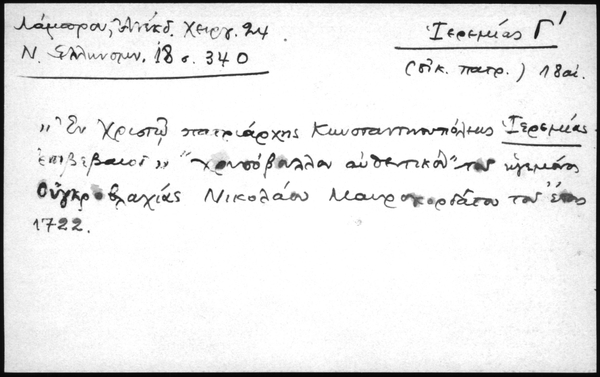 Λάμπρου, Ἀνέκδ. Χειργ. 24.
Ν. Ἑλληνομν. 18 σ. 340
Ἱερεμίας Γ΄
(οἰκ. πατρ.) 18 αἰ.
"Ἐν Χριστῷ πατριάρχης Κωνσταντινουπόλεως Ἱερεμίας
ἐπιβεβαιοῖ" "χρυσόβουλλον αὐθεντικὸν" τοῦ ἡγεμόνος
Οὐγκροβλαχίας Νικολάου Μαυροκορδάτου τοῦ ἔτους
1722.